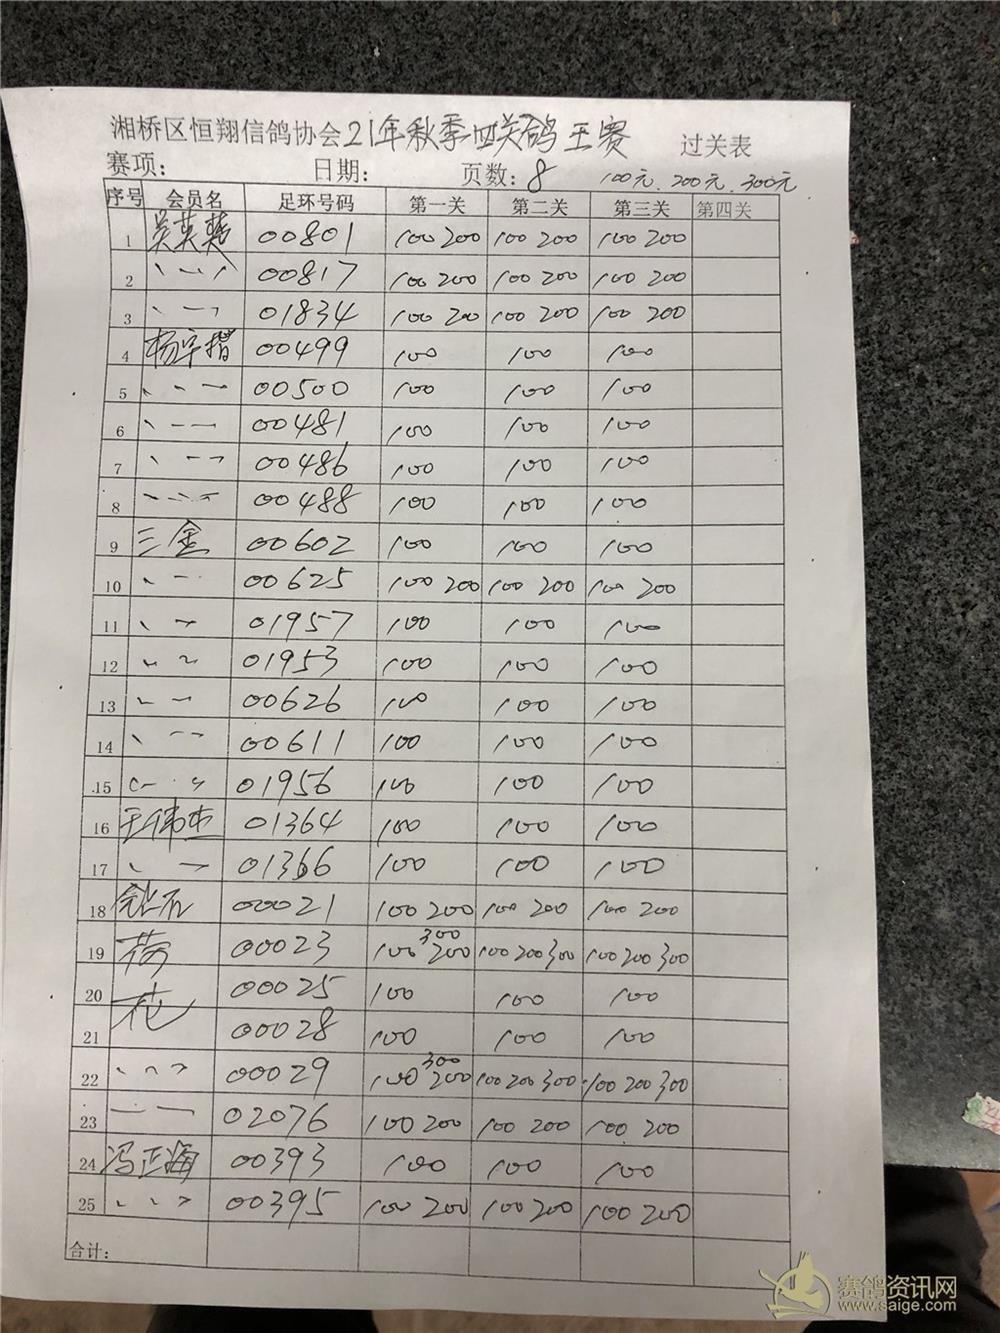 湘桥区恒翔信鸽协会21年秋季四关鸽王赛 过关表
赛项: 日期: 页数: 8 100元.200元.300元
序号 会员名 足环号码 第一关 第二关 第三关 第四关
1 吴英 00801 100 200 100 200 100 200
2 、、一、 00817 100 200 100 200 100 200
3 、一、 01834 100 200 100 200 100 200
4 杨 00499 100 100 100
5 、、一 00500 100 100 100
6 、一一 00481 100 100 100
7 、一、 00486 100 100 100
8 、、、 00488 100 100 100
9 三金 00602 100 100 100
10 、一 00625 100 200 100 200 100 200
11 、、 01957 100 100 100
12 、、 01953 100 100 100
13 、一 00626 100 100 100
14 、一、 00611 100 100 100
15 、、 01956 100 100 100
16 王伟杰 01364 100 100 100
17 、一 01366 100 100 100
18 钻石 00021 100 200 100 200 100 200
19 荷 00023 100 200 300 100 200 300 100 200 300
20 花 00025 100 100 100
21 00028 100 100 100
22 、、、 00029 100 200 300 100 200 300 100 200 300
23 一一 02076 100 200 100 200 100 200
24 冯正海 00393 100 100 100
25 、、、 00395 100 200 100 200 100 200
合计:
赛鸽资讯网
www.saige.com